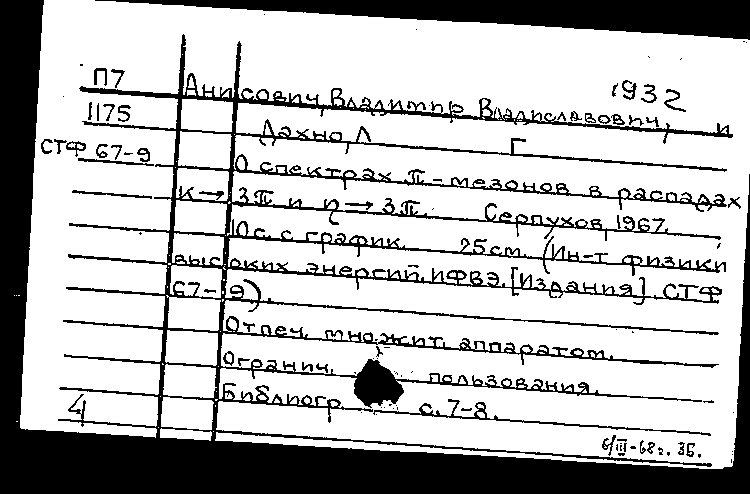 П7 1932
Анисович, Владимир Владиславович, и
1175 Дахно, Л Г
СТФ 67-9 О спектрах π-мезонов в распадах
K → 3π и η → 3π. Серпухов, 1967.
10с. с график. 25см. (Ин-т физики
высоких энергий. ИФВЭ. [Издания]. СТФ
67-9).
Отпеч. множит. аппаратом.
Огранич. пользования.
Библиогр. с. 7-8.
4
6/III-68г. ЗБ.